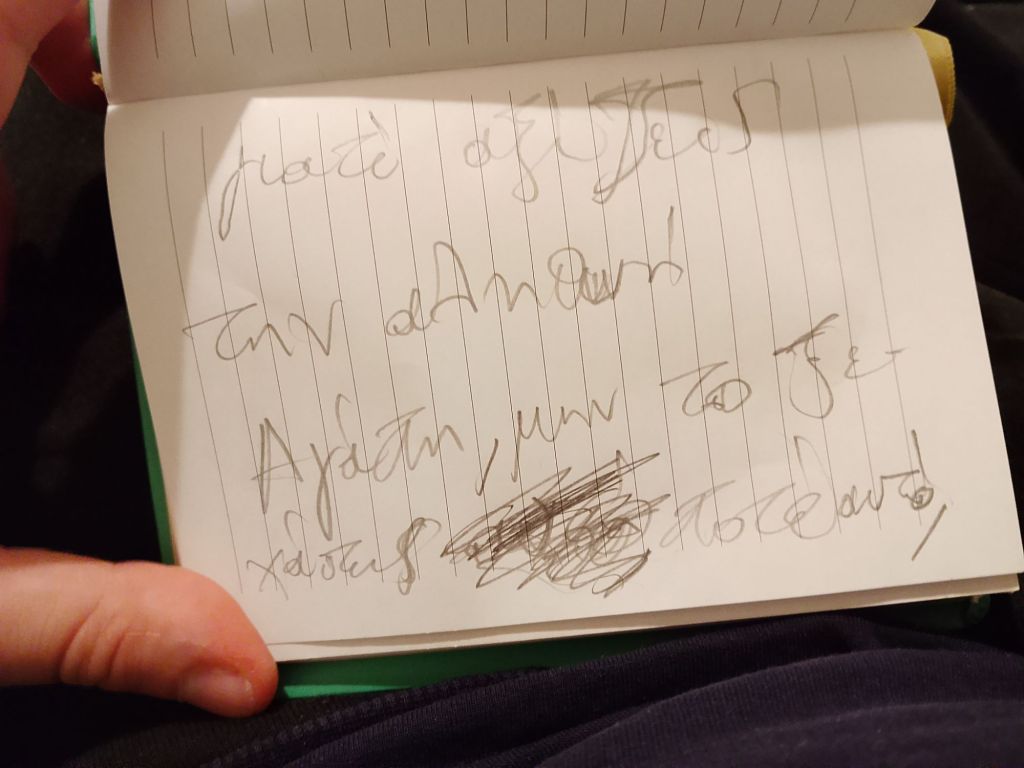 γιατί αξίζεις
την αληθινή
Αγάπη, μην το ξε-
χάσεις ποτέ αυτό,